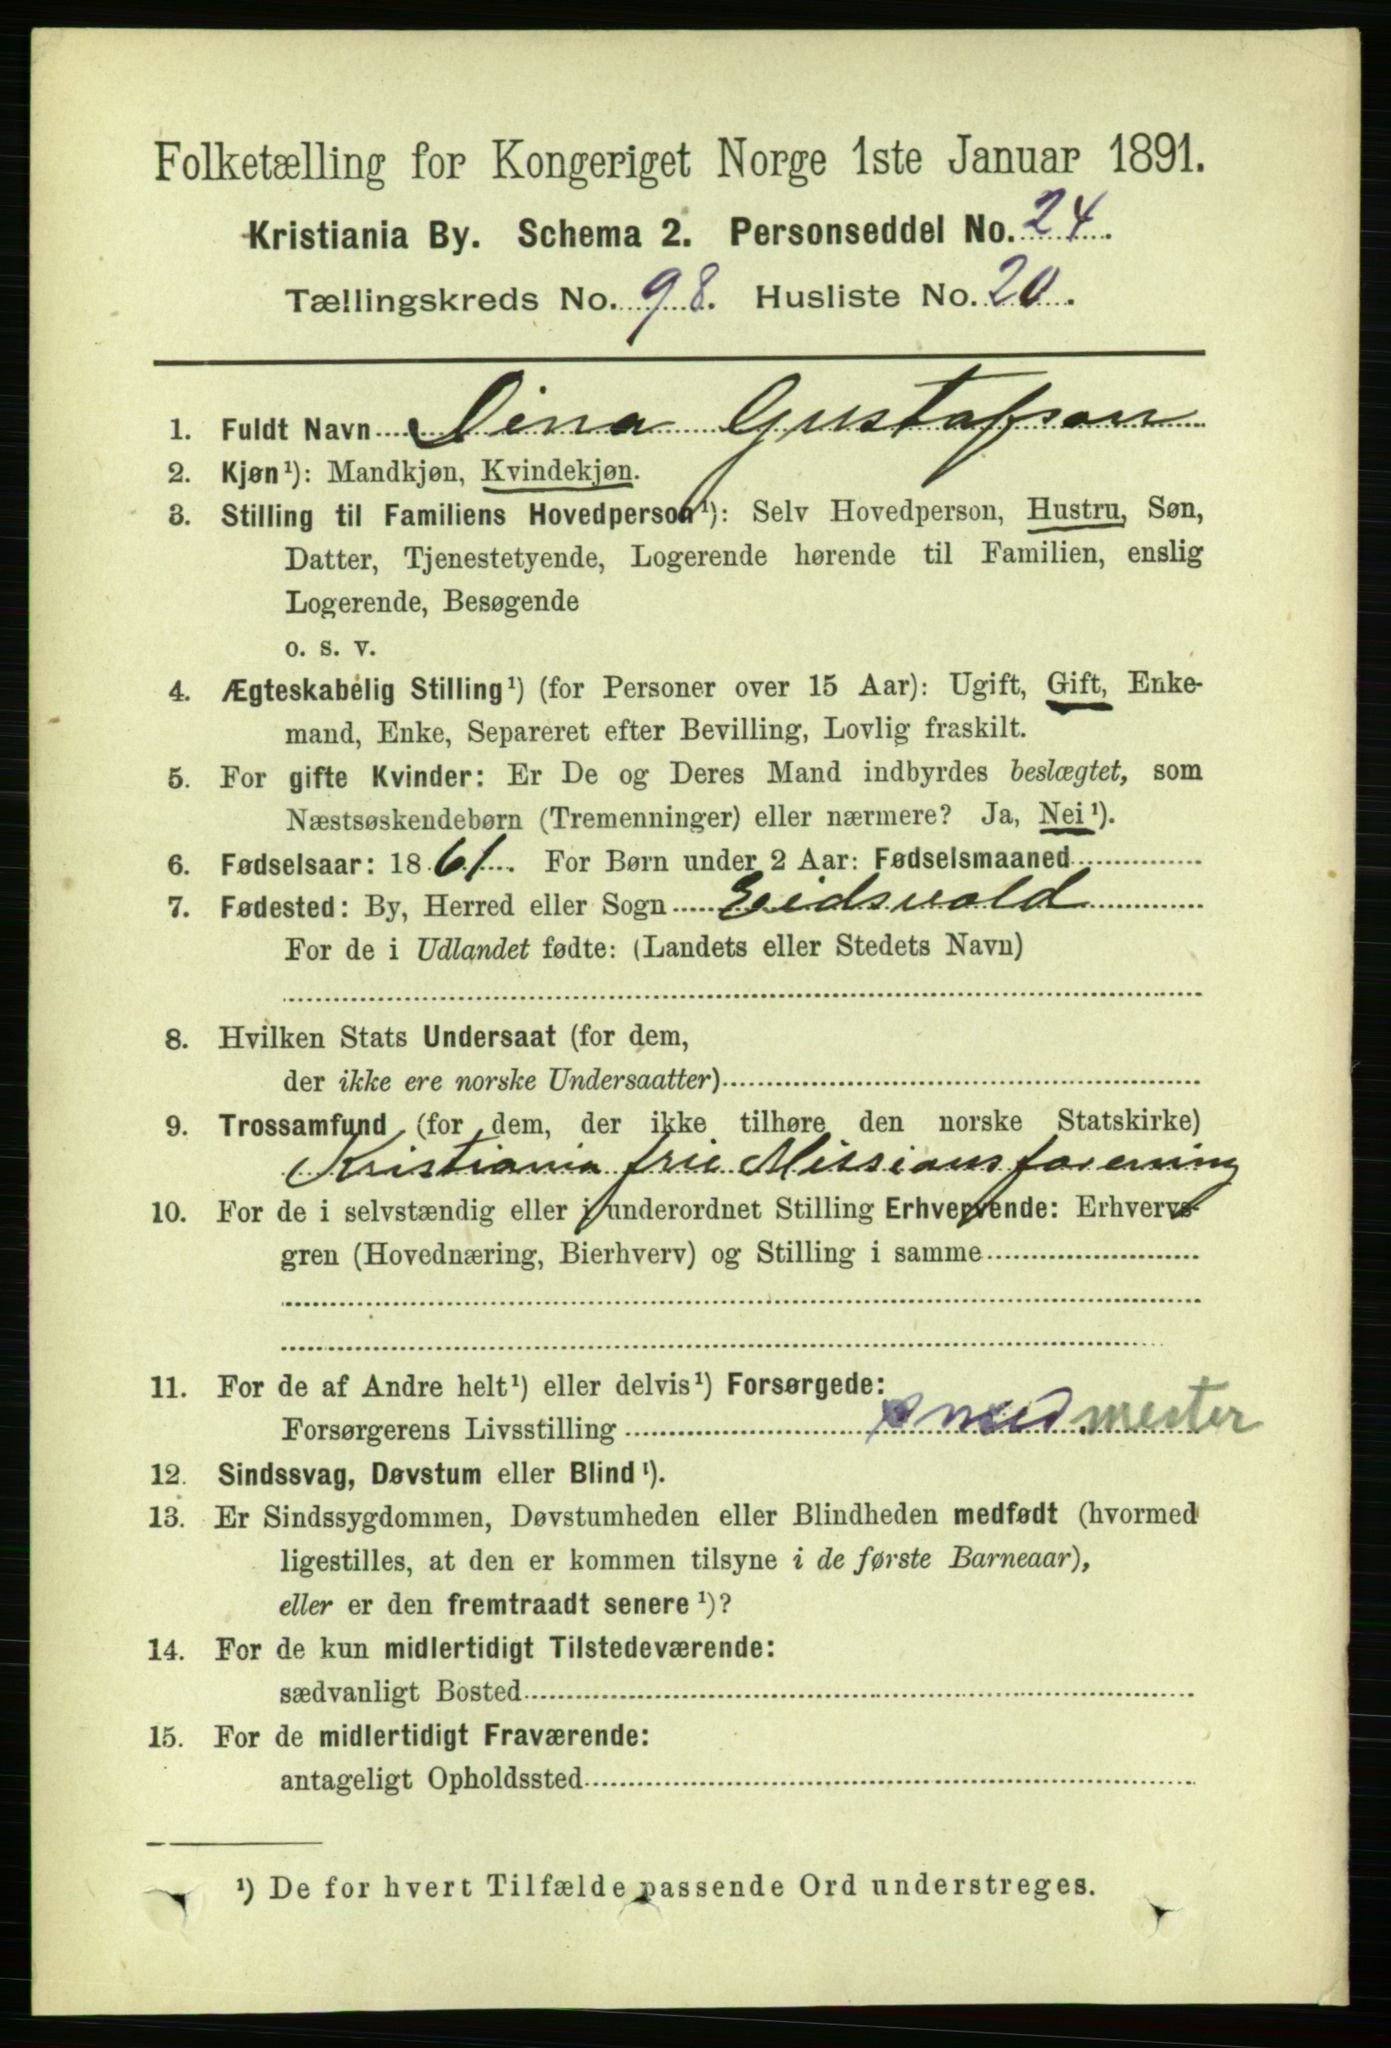 Folketælling for Kongeriget Norge 1ste Januar 1891.
Kristiania By. Schema 2. Personseddel No. 24.
Tællingskreds No. 98. Husliste No. 20.
1. Fuldt Navn Dina Gustafson
2. Kjøn¹): Mandkjøn, Kvindekjøn.
3. Stilling til Familiens Hovedperson¹): Selv Hovedperson, Hustru, Søn,
Datter, Tjenestetyende, Logerende hørende til Familien, enslig
Logerende, Besøgende
o. s. v.
4. Ægteskabelig Stilling¹) (for Personer over 15 Aar): Ugift, Gift, Enke-
mand, Enke, Separeret efter Bevilling, Lovlig fraskilt.
5. For gifte Kvinder: Er De og Deres Mand indbyrdes beslægtet, som
Næstsøskendebørn (Tremenninger) eller nærmere? Ja, Nei¹).
6. Fødselsaar: 1861. For Børn under 2 Aar: Fødselsmaaned
7. Fødested: By, Herred eller Sogn Eidsvold
For de i Udlandet fødte: (Landets eller Stedets Navn)
8. Hvilken Stats Undersaat (for dem,
der ikke ere norske Undersaatter)
9. Trossamfund (for dem, der ikke tilhøre den norske Statskirke)
Kristiania frie Missionsforening
10. For de i selvstændig eller i underordnet Stilling Erhvervende: Erhvervs-
gren (Hovednæring, Bierhverv) og Stilling i samme
11. For de af Andre helt¹) eller delvis¹) Forsørgede:
Forsørgerens Livsstilling smedmester
12. Sindssvag, Døvstum eller Blind¹).
13. Er Sindssygdommen, Døvstumheden eller Blindheden medfødt (hvormed
ligestilles, at den er kommen tilsyne i de første Barneaar),
eller er den fremtraadt senere¹)?
14. For de kun midlertidigt Tilstedeværende:
sædvanligt Bosted
15. For de midlertidigt Fraværende:
antageligt Opholdssted
¹) De for hvert Tilfælde passende Ord understreges.